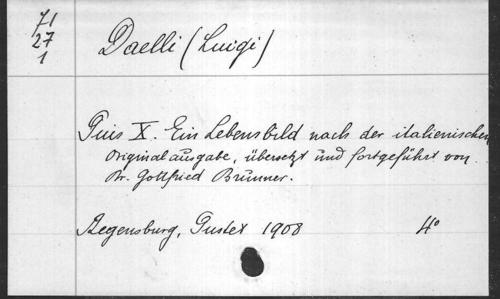 71
27
1
Daelli (Luigi)
Pius X. Ein Lebensbild nach der italienischen
Originalausgabe, übersetzt und fortgeführt von
Dr. Gottfried Brunner.
Regensburg, Pustet 1908 4°